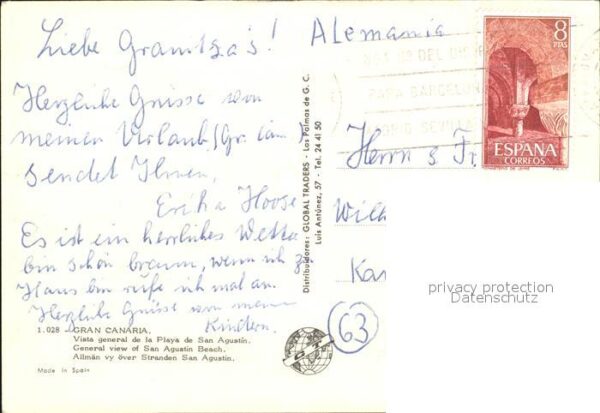 Liebe Granitza's!
Herzliche Grüsse von
meinen Urlaub (Gr.
sendet Ihnen,
Erika Hoose
Es ist ein herrliches Wette
bin schön braun, wenn ich zu
Haus bin rufe ich mal an.
Herzliche Grüsse von mein
Kindern.
1.028 - GRAN CANARIA.
Vista general de la Playa de San Agustín.
General view of San Agustin Beach.
Allmän vy över Stranden San Agustin.
Made in Spain
Distribuidores: GLOBAL TRADERS - Las Palmas de G. C.
Luis Antúnez, 57 - Tel. 24 41 50
Alemania
8
PTAS
ESPAÑA
CORREOS
DEL
PARA BARCELONA
SEVILLA
Herrn & Fr
Will
Kas
63
privacy protection
Datenschutz